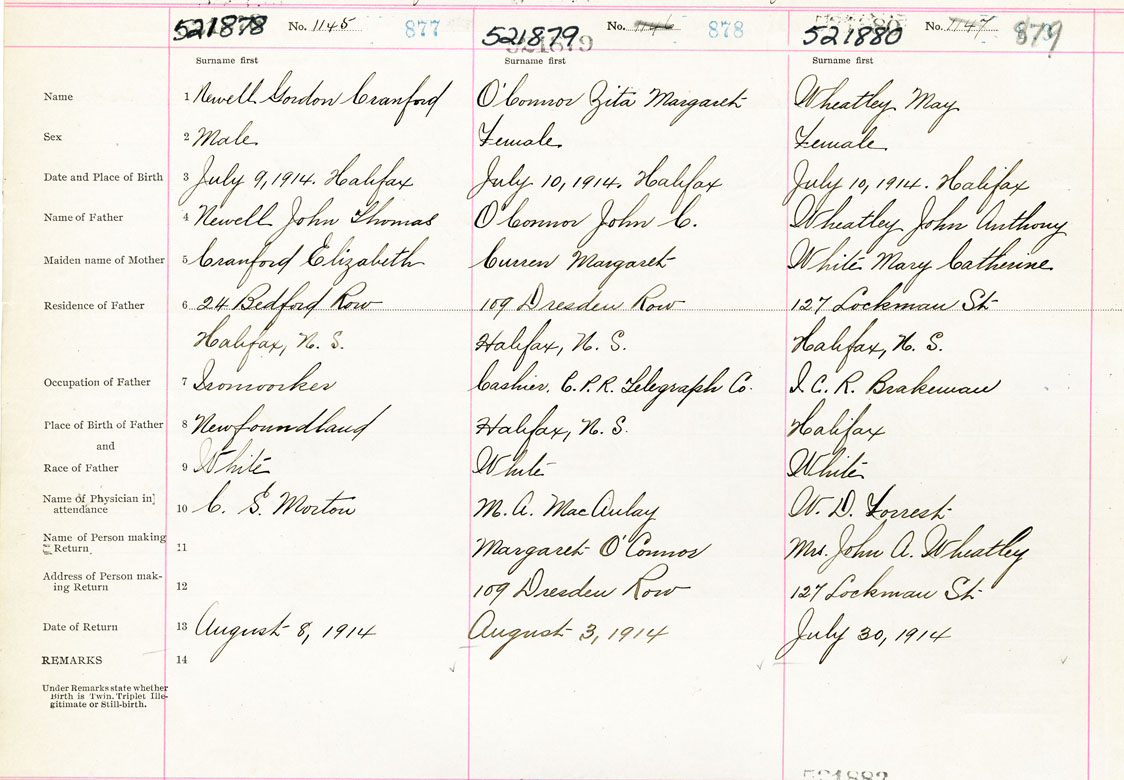 521878 No. 1145 877 521879 No. 1146 878 521880 No. 1147 879
521879
Surname first Surname first Surname first
Name 1 Newell Gordon Cranford O'Connor Zita Margaret Wheatley May
Sex 2 Male Female Female
Date and Place of Birth 3 July 9, 1914. Halifax July 10, 1914. Halifax July 10, 1914. Halifax
Name of Father 4 Newell John Thomas O'Connor John C. Wheatley John Anthony
Maiden name of Mother 5 Cranford Elizabeth Curren Margaret White Mary Catherine
Residence of Father 6 24 Bedford Row 109 Dresden Row 127 Lockman St
Halifax, N. S. Halifax, N. S. Halifax, N. S.
Occupation of Father 7 Ironworker Cashier. C.P.R. Telegraph Co. I.C.R. Brakeman
Place of Birth of Father 8 Newfoundland Halifax, N. S. Halifax
and
Race of Father 9 White White White
Name of Physician in
attendance 10 C. S. Morton M. A. MacAulay W. D. Forrest
Name of Person making
Return 11 Margaret O'Connor Mrs. John A. Wheatley
Address of Person mak-
ing Return 12 109 Dresden Row 127 Lockman St
Date of Return 13 August 8, 1914 August 3, 1914 July 30, 1914
REMARKS 14
Under Remarks state whether
Birth is Twin, Triplet Ille-
gitimate or Still-birth.